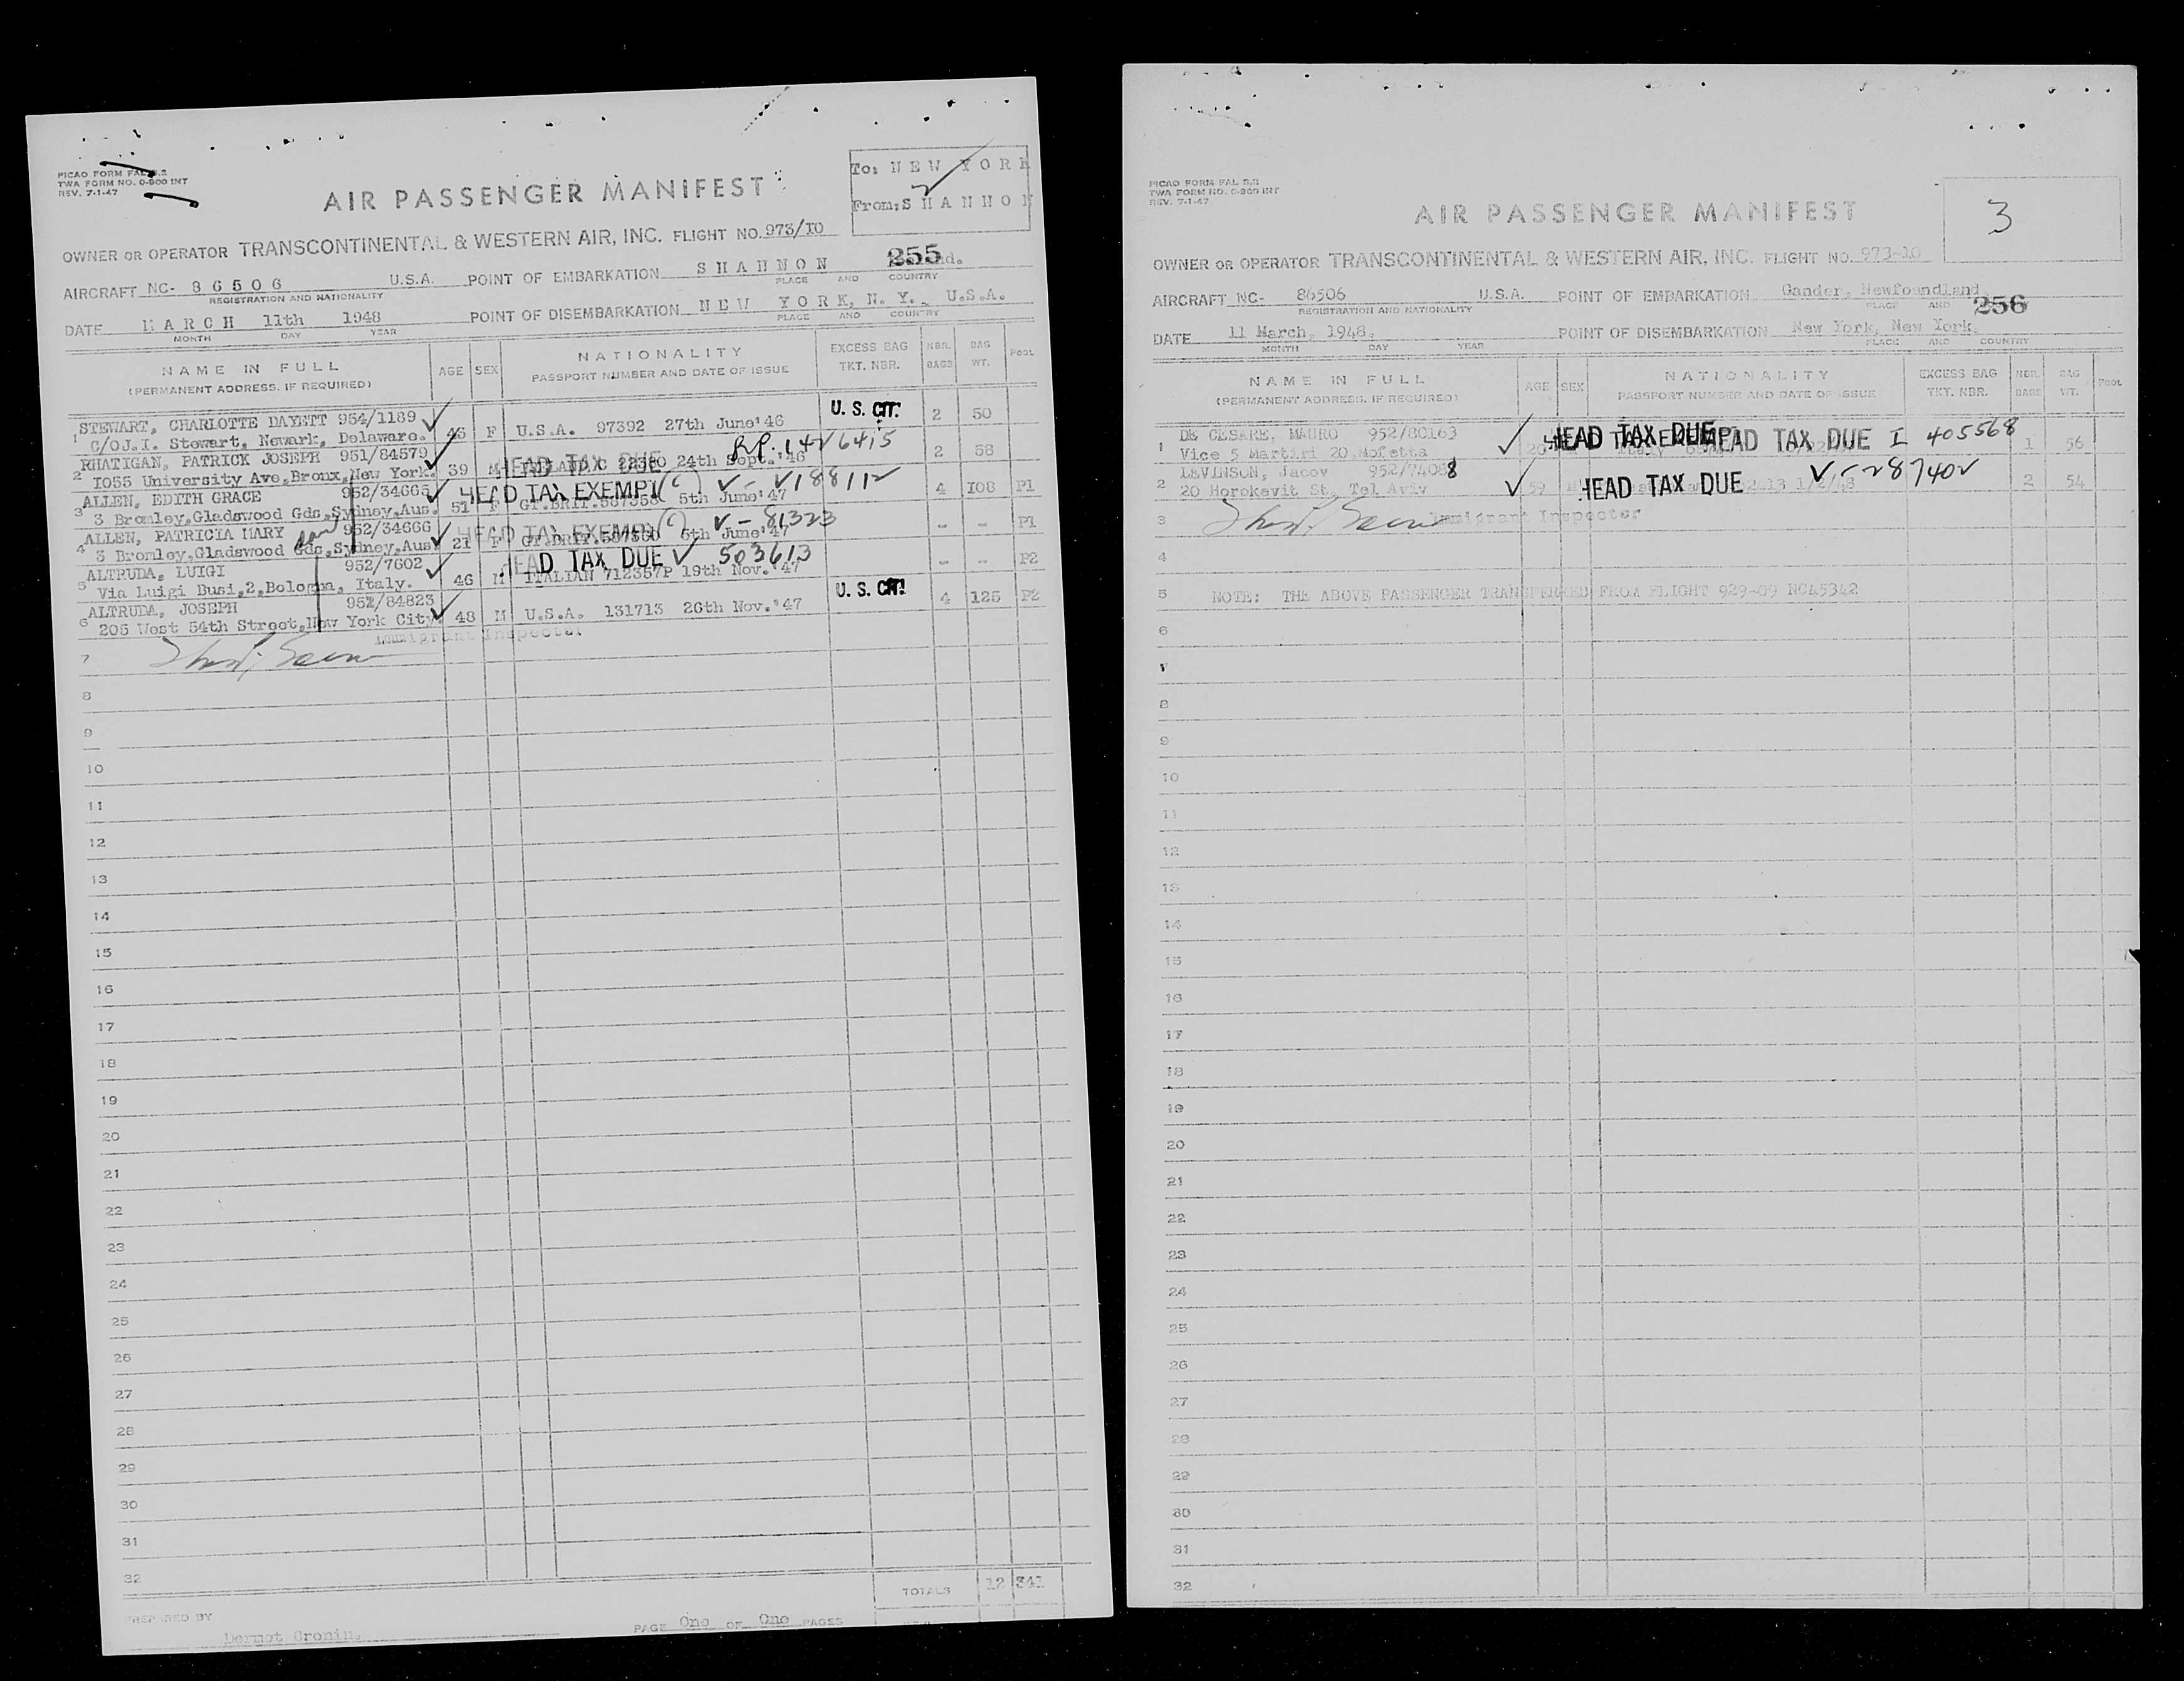 PICAO FORM FAL S.2
TWA FORM NO. O-900 INT
REV. 7-1-47
AIR PASSENGER MANIFEST
To: NEW YORK
From: SHANNON
OWNER OR OPERATOR TRANSCONTINENTAL & WESTERN AIR, INC. FLIGHT NO. 973/10
255
AIRCRAFT NC- 86506 U.S.A. POINT OF EMBARKATION SHANNON
REGISTRATION AND NATIONALITY PLACE AND COUNTRY
DATE MARCH 11th 1948 POINT OF DISEMBARKATION NEW YORK, N. Y., U.S.A.
MONTH DAY YEAR PLACE AND COUNTRY
NAME IN FULL AGE SEX NATIONALITY EXCESS BAG NBR. BAG POOL
(PERMANENT ADDRESS, IF REQUIRED) PASSPORT NUMBER AND DATE OF ISSUE TKT. NBR. BAGS WT.
1 STEWART, CHARLOTTE DAYETT 954/1189 U. S. CIT.
C/O J.I. Stewart, Newark, Delaware. F U.S.A. 97392 27th June'46 2 50
2 RHATIGAN, PATRICK JOSEPH 951/84579 HEAD TAX DUE
1055 University Ave, Bronx, New York. 39 M 24th Sept.'46 2 58
3 ALLEN, EDITH GRACE 952/34665 HEAD TAX EXEMPT (C) V- 188112
3 Bromley, Gladswood Gds, Sydney, Aus. 51 F GT.BRIT. 5th June'47 4 108 P1
4 ALLEN, PATRICIA MARY 952/34666 HEAD TAX EXEMPT (C) V- 81323
3 Bromley, Gladswood Gds, Sydney, Aus. 21 F GT.BRIT. 5th June'47 - - P1
5 ALTRUDA, LUIGI 952/7602 HEAD TAX DUE 503613
Via Luigi Busi, 2, Bologna, Italy. 46 M ITALIAN 712357P 19th Nov.'47 - - P2
6 ALTRUDA, JOSEPH 952/84823 U. S. CIT.
205 West 54th Street, New York City. 48 M U.S.A. 131713 26th Nov.'47 4 125 P2
Immigrant Inspector
7
8
9
10
11
12
13
14
15
16
17
18
19
20
21
22
23
24
25
26
27
28
29
30
31
32
TOTALS 12 341
PREPARED BY Dermot Cronin. PAGE One OF One PAGES
PICAO FORM FAL S.2
TWA FORM NO. O-900 INT
REV. 7-1-47
AIR PASSENGER MANIFEST
3
OWNER OR OPERATOR TRANSCONTINENTAL & WESTERN AIR, INC. FLIGHT NO. 973-10
AIRCRAFT NC- 86506 U.S.A. POINT OF EMBARKATION Gander, Newfoundland
REGISTRATION AND NATIONALITY PLACE AND 256
DATE 11 March, 1948. POINT OF DISEMBARKATION New York, New York.
MONTH DAY YEAR PLACE AND COUNTRY
NAME IN FULL AGE SEX NATIONALITY EXCESS BAG NBR. BAG POOL
(PERMANENT ADDRESS, IF REQUIRED) PASSPORT NUMBER AND DATE OF ISSUE TKT. NBR. BAGS WT.
1 DE CESARE, MAURO 952/80163 HEAD TAX DUE I 405568
Vice 5 Martiri 20 Mofetta Italy 1 56
2 LEVINSON, Jacov 952/74088 HEAD TAX DUE V-28740
20 Horokevit St, Tel Aviv 59 2 54
3 Immigrant Inspector
4
5 NOTE: THE ABOVE PASSENGER TRANSFERRED FROM FLIGHT 929-09 NC45342
6
7
8
9
10
11
12
13
14
15
16
17
18
19
20
21
22
23
24
25
26
27
28
29
30
31
32